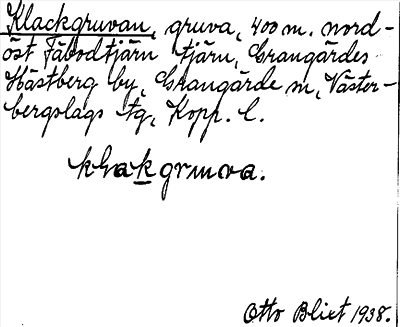 Klackgruvan, gruva, 400 m. nord-
öst Fäbodtjärn tjärn, Grangärdes
Hästberg by, Grangärde sn, Väster-
bergslags tg, Kopp. l.
klakgruva.
Otto Blixt 1938.